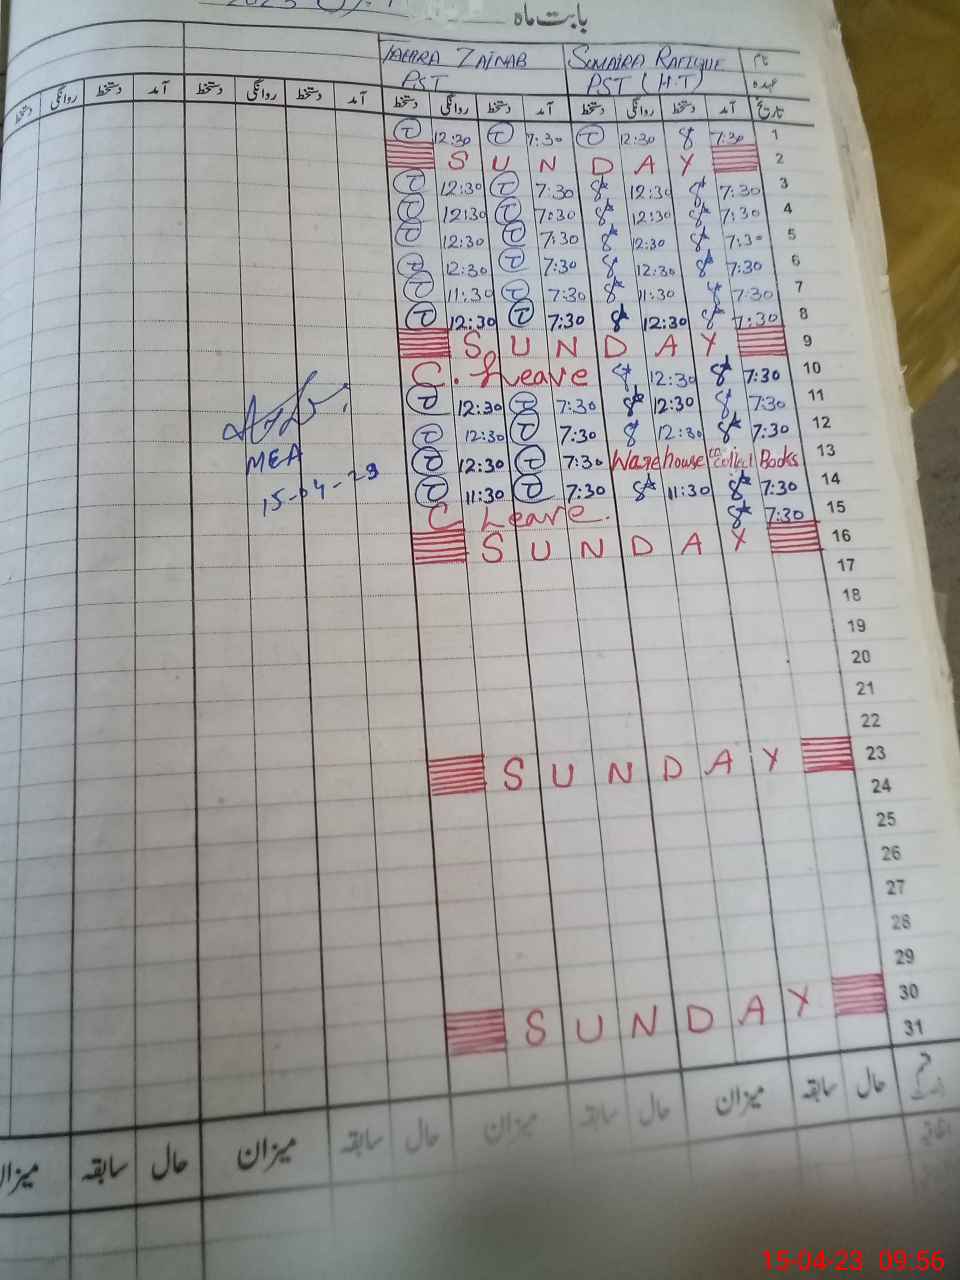 بابت ماہ 2023
ZAINAB SUMAIRA RAFIQUE نام
PST PST (H.T) عہدہ
دستخط روانگی دستخط آمد دستخط روانگی دستخط آمد دستخط روانگی دستخط آمد دستخط روانگی دستخط آمد تاریخ
12:30 7:30 12:30 7:30 1
SUNDAY 2
12:30 7:30 12:30 7:30 3
12:30 7:30 12:30 7:30 4
12:30 7:30 12:30 7:30 5
12:30 7:30 12:30 7:30 6
11:30 7:30 11:30 7:30 7
12:30 7:30 12:30 7:30 8
SUNDAY 9
C. Leave 12:30 7:30 10
12:30 7:30 12:30 7:30 11
12:30 7:30 12:30 7:30 12
12:30 7:30 Warehouse to collect Books 13
11:30 7:30 11:30 7:30 14
C Leave. 7:30 15
SUNDAY 16
MEA
15-04-23
17
18
19
20
21
22
SUNDAY 23
24
25
26
27
28
29
SUNDAY 30
31
میزان سابقہ حال میزان سابقہ حال میزان سابقہ حال میزان سابقہ حال
15-04-23 09:56